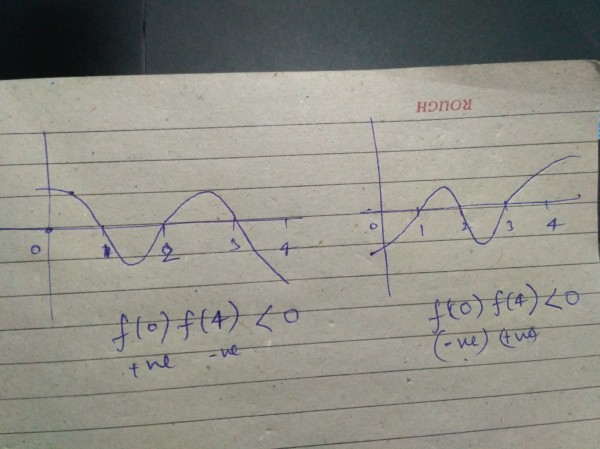 ROUGH
0 1 2 3 4
f(0) f(4) < 0
+ve -ve
0 1 2 3 4
f(0) f(4) < 0
(-ve) (+ve)